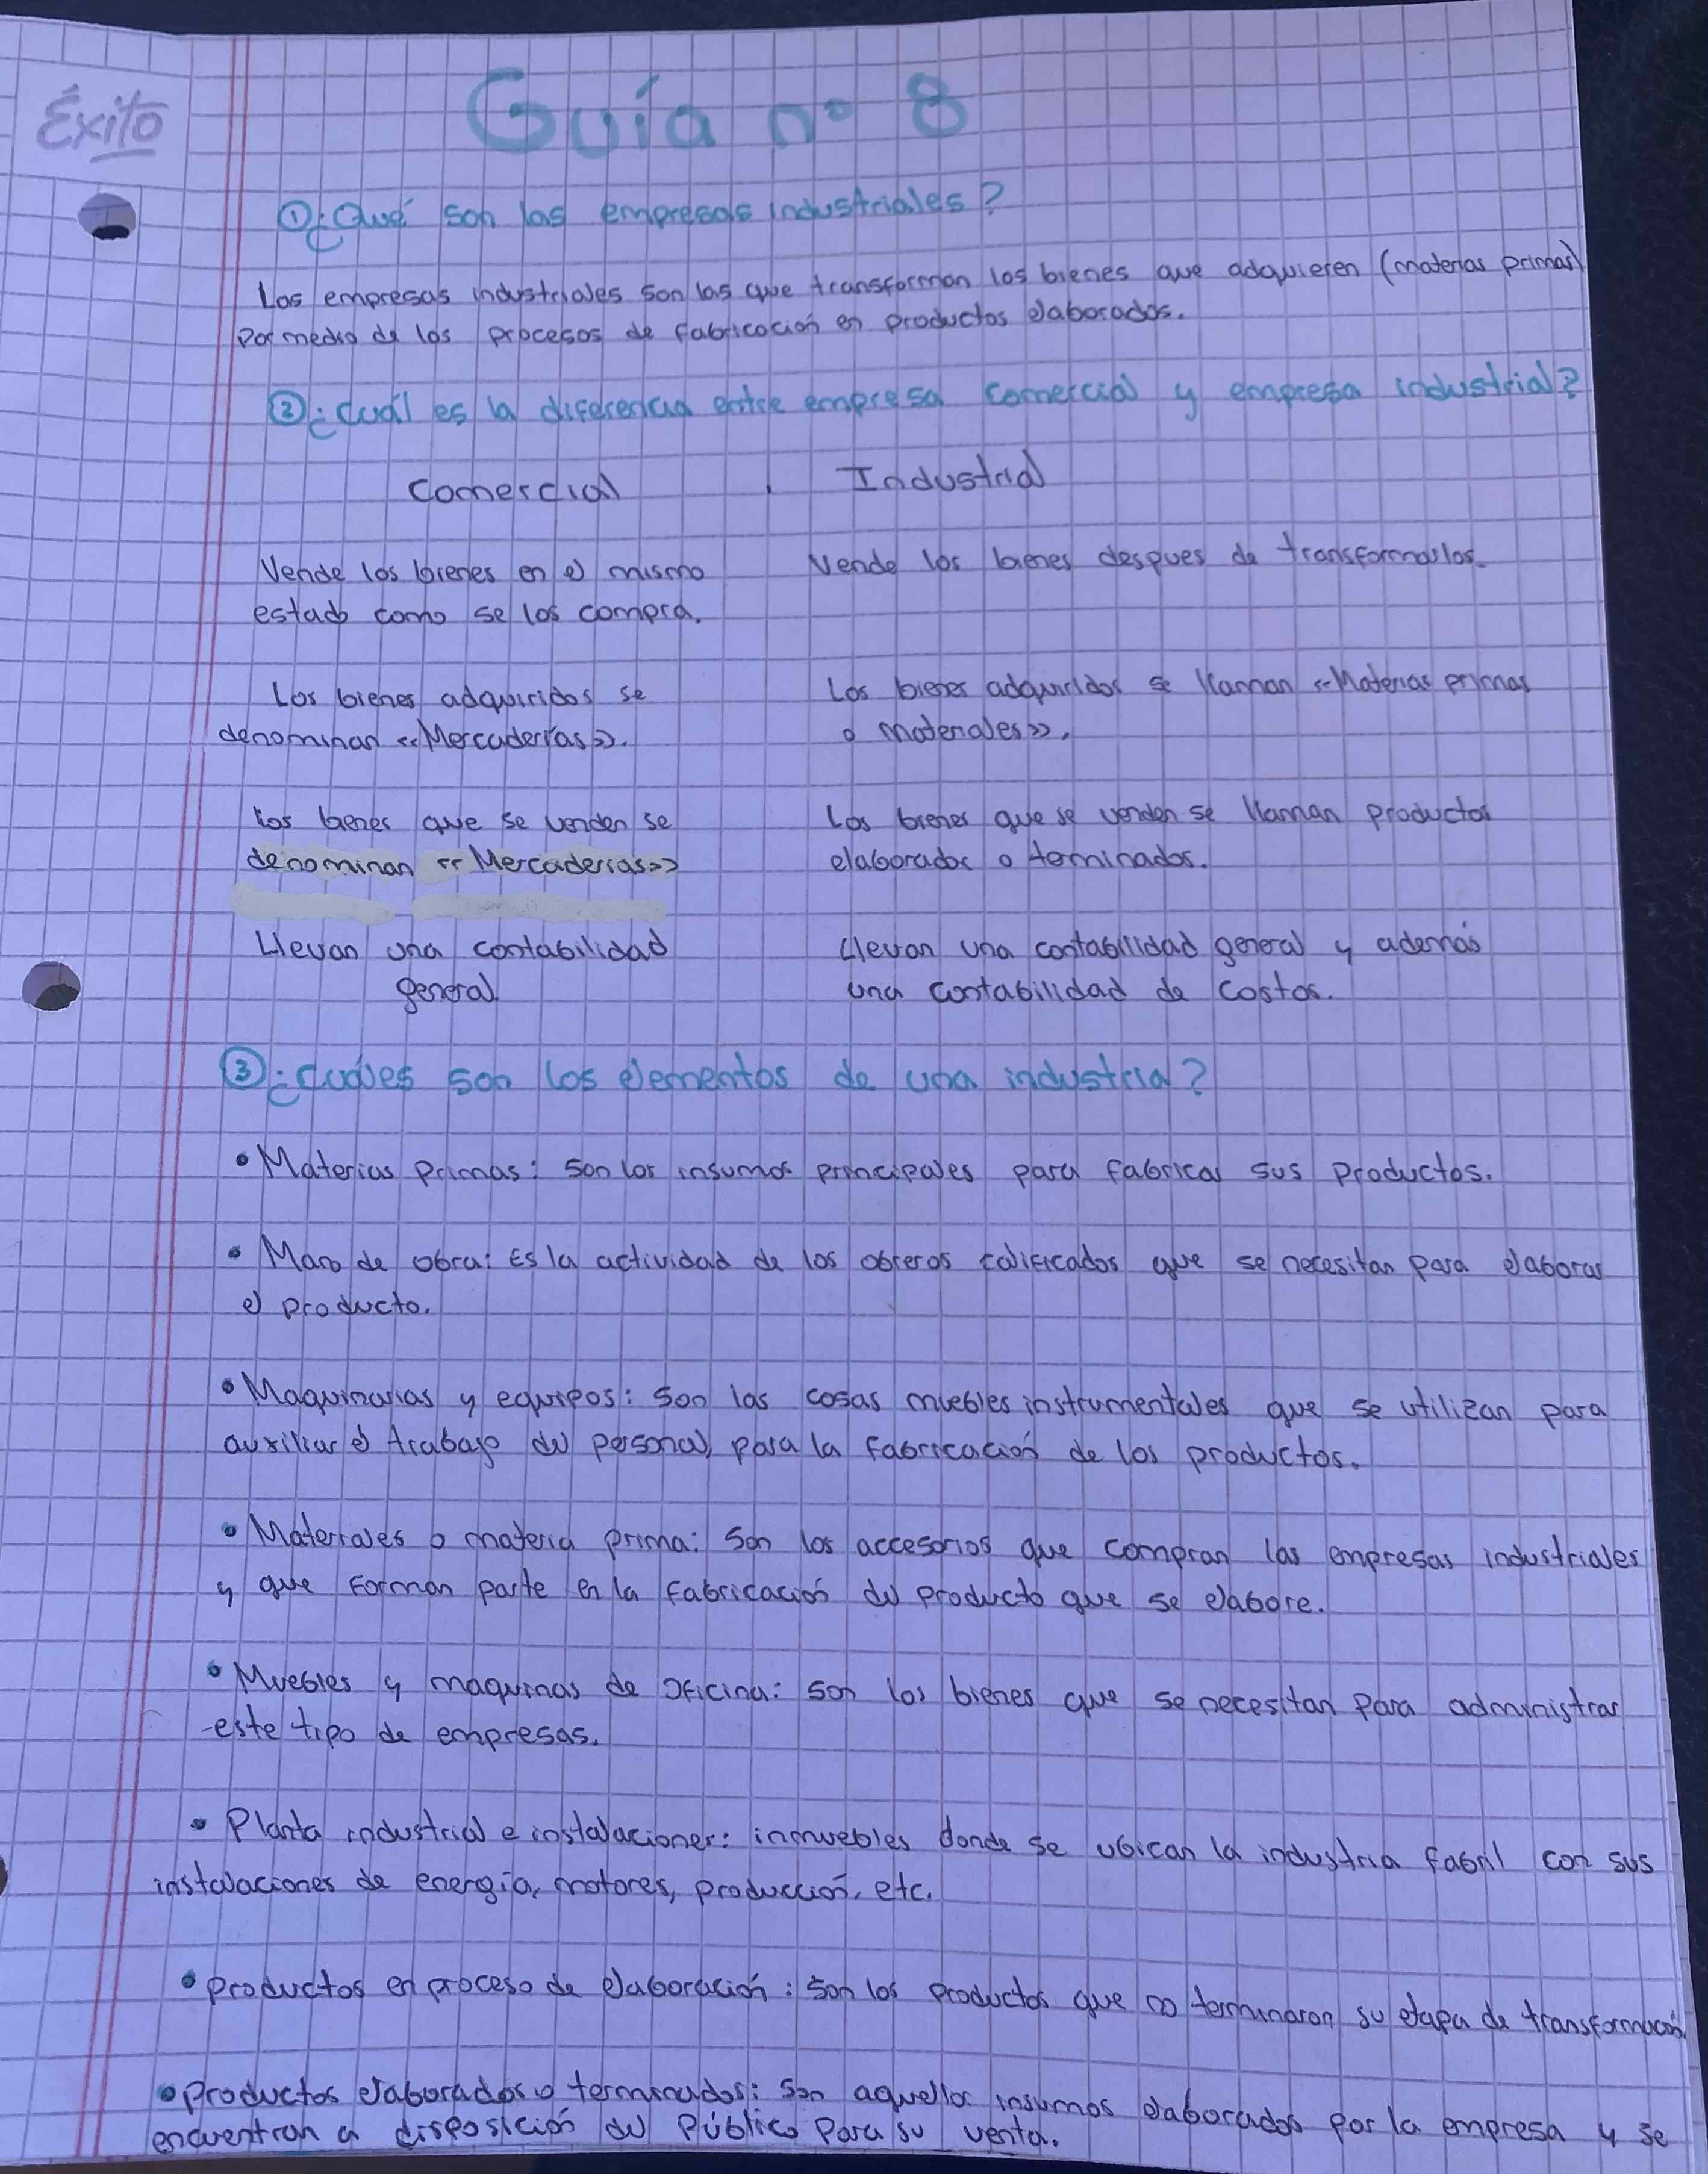 Éxito
Guía nº 8
① ¿Qué son las empresas industriales?
Las empresas industriales son las que transforman los bienes que adquieren (materias primas)
por medio de los procesos de fabricación en productos elaborados.
② ¿Cuál es la diferencia entre empresa comercial y empresa industrial?
Comercial
Industrial
Vende los bienes en el mismo
estado como se los compra.
Vende los bienes despues de transformarlos.
Los bienes adquiridos se
denominan <<Mercaderías>>.
Los bienes adquiridos se llaman <<Materias primas
o materiales>>.
Los bienes que se venden se
denominan <<Mercaderias>>
Los bienes que se venden se llaman productos
elaborados o terminados.
Llevan una contabilidad
general.
Llevan una contabilidad general y además
una contabilidad de costos.
③ ¿Cuáles son los elementos de una industria?
• Materias Primas: son los insumos principales para fabricar sus productos.
• Mano de obra: Es la actividad de los obreros calificados que se necesitan para elaborar
el producto.
• Maquinarias y equipos: son las cosas muebles instrumentales que se utilizan para
auxiliar el trabajo del personal, para la fabricación de los productos.
• Materiales o materia prima: Son los accesorios que compran las empresas industriales
y que forman parte en la fabricación del producto que se elabore.
• Muebles y maquinas de oficina: son los bienes que se necesitan para administrar
este tipo de empresas.
• Planta industrial e instalaciones: inmuebles donde se ubican la industria fabril con sus
instalaciones de energía, motores, producción, etc.
• Productos en proceso de elaboración: son los productos que no terminaron su etapa de transformación.
• Productos elaborados o terminados: son aquellos insumos elaborados por la empresa y se
encuentran a disposición del público para su venta.